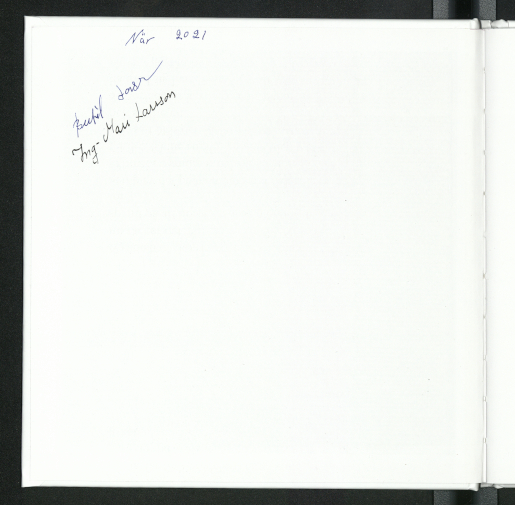 När 2021
Bertil
Ing-Mari Larsson